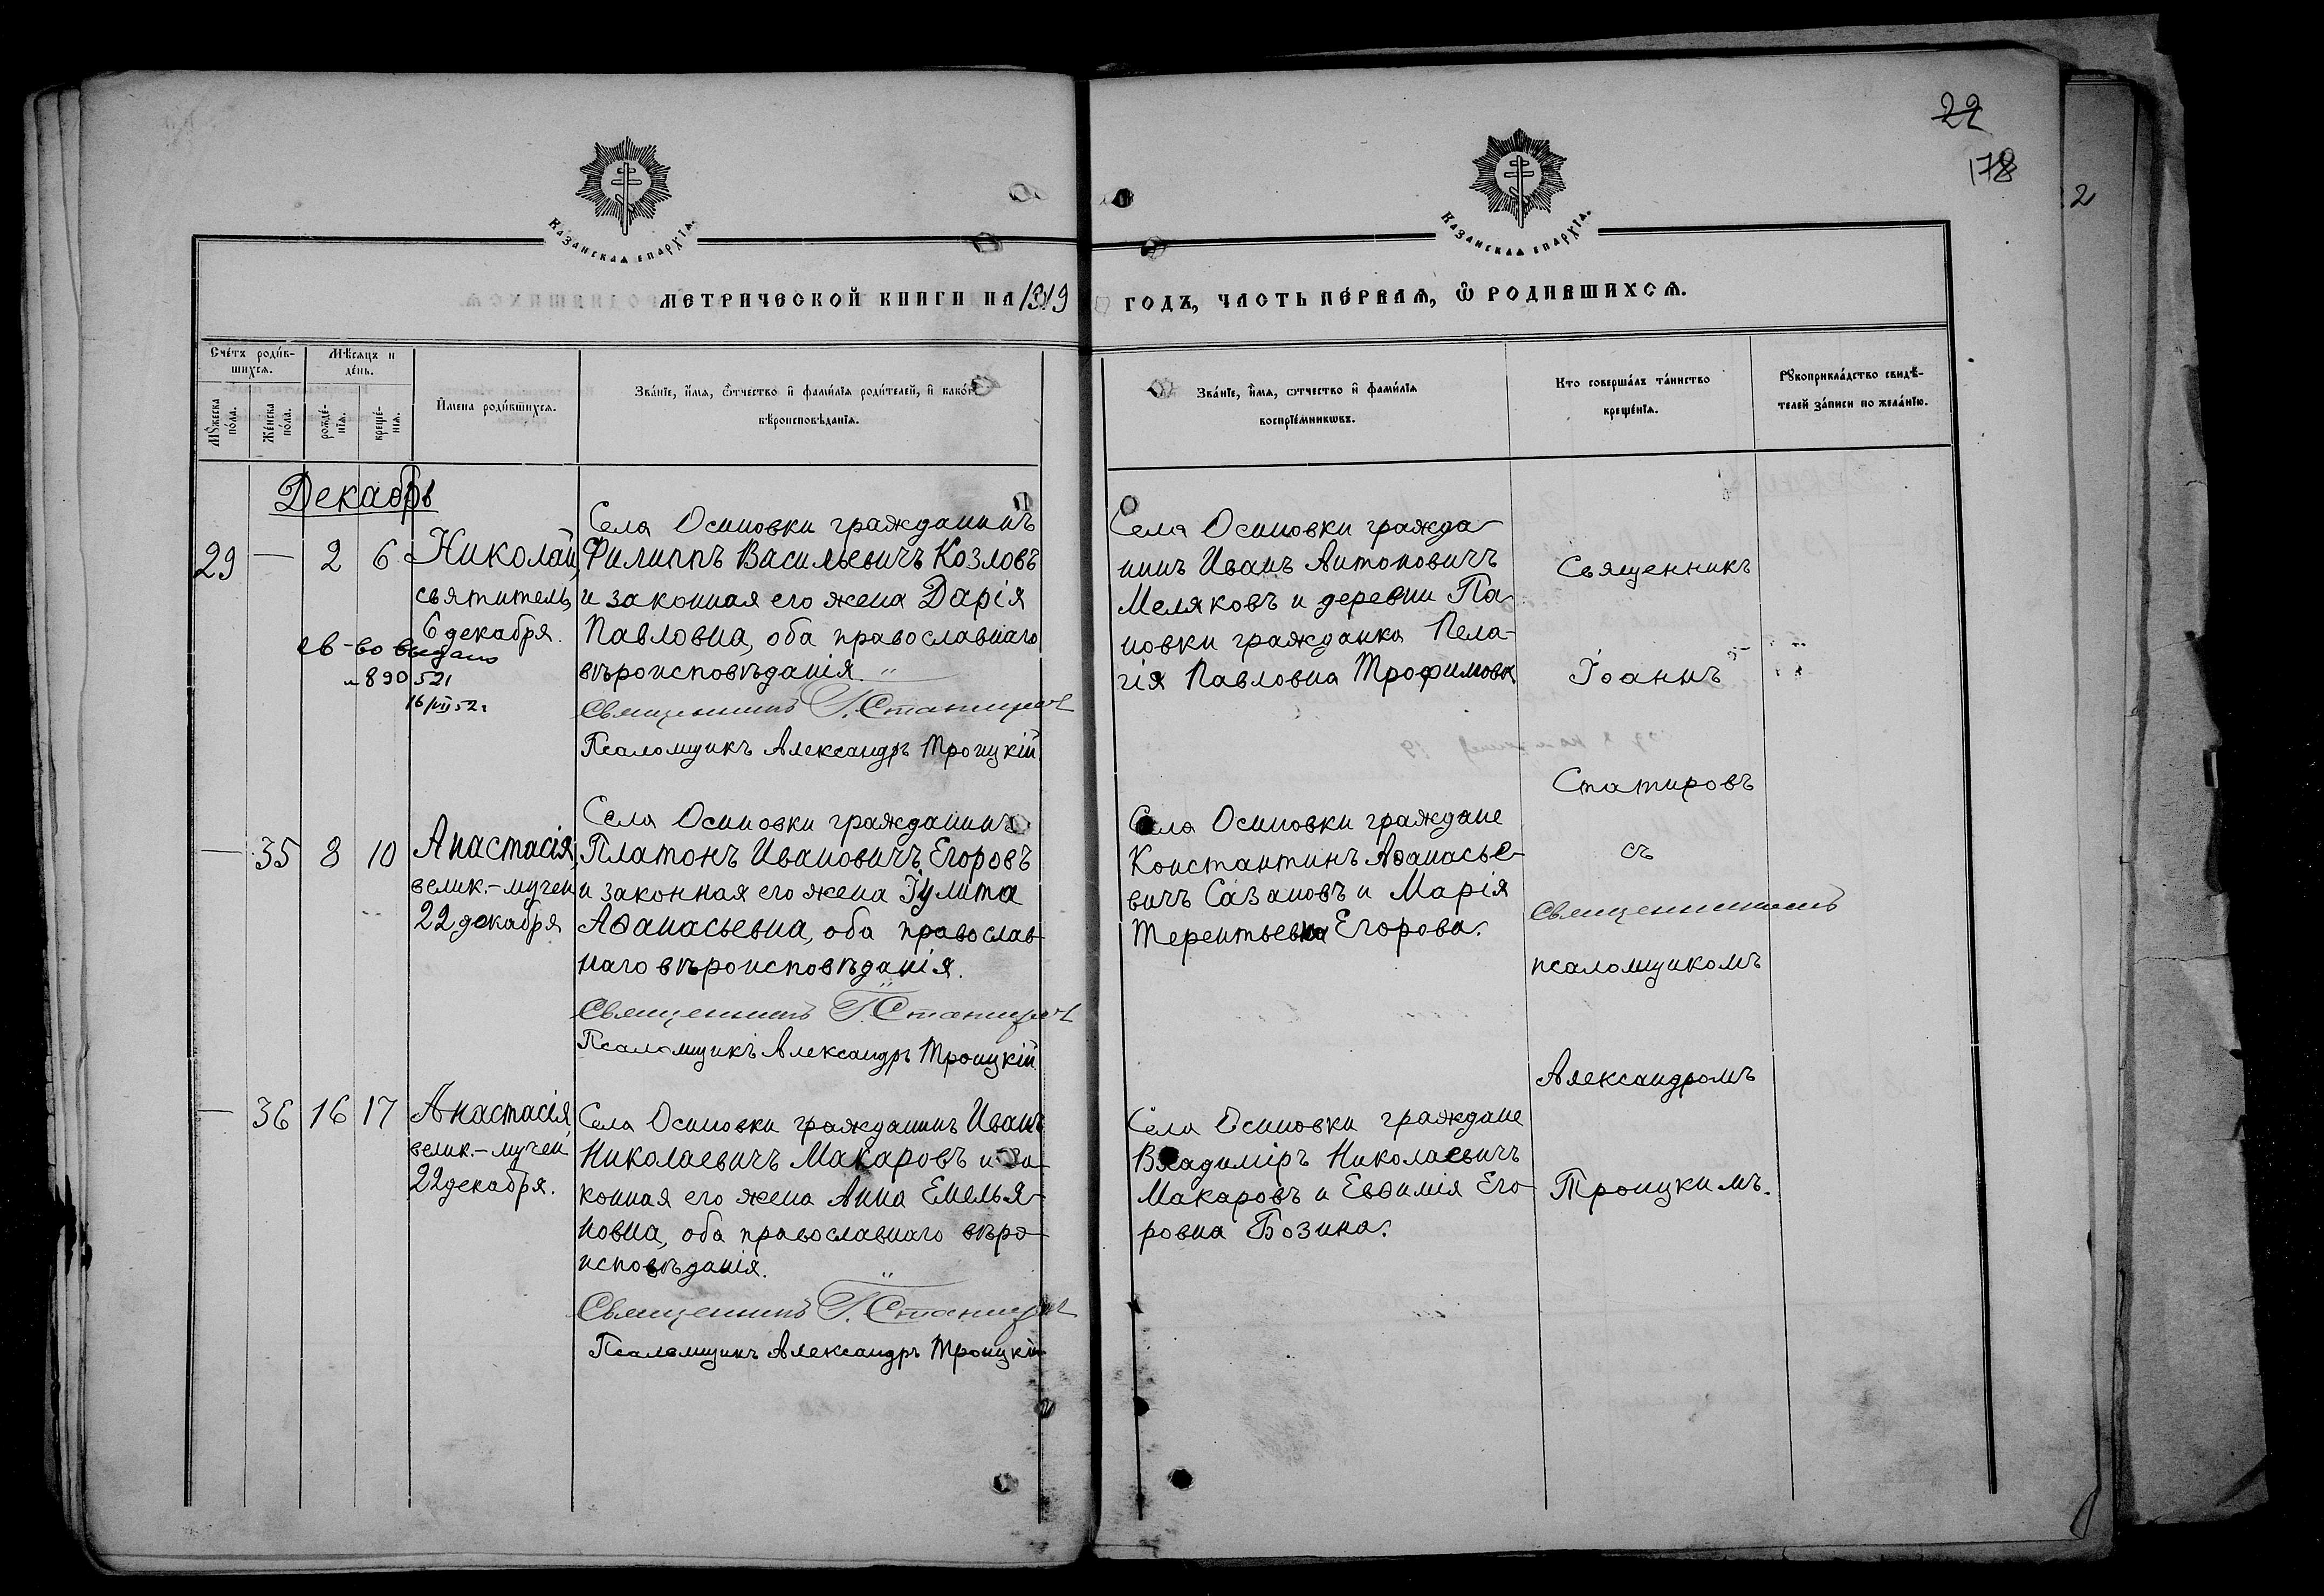 22
178
2
Казанская епархїа.
Казанская епархїа.
МЕТРИЧЕСКОЙ КНИГИ НА 1919
ГОДЪ, ЧАСТЬ ПЕ́РВАѦ, Ѽ РОДИВШИХСѦ.
Сче́тъ роди́в-
шихсѧ.
Мꙋ́жеска
по́ла.
Же́нска
по́ла.
Мѣ́сѧцъ и
де́нь.
рожде́-
нїѧ.
креще́-
нїѧ.
И҆мена роди́вшихсѧ.
Зва́нїе, и҆́мѧ, ѻ҆́тчество и҆ фами́лїѧ роди́телей, и҆ како́гѡ
вѣ̀роисповѣ́данїѧ.
Зва́нїе, и҆́мѧ, ѻ҆тчество и҆ фами́лїѧ
воспрїе́мникѡвъ.
Кто соверша́лъ та́инство
креще́нїѧ.
Рꙋкоприкла́дство свидѣ́-
телей за́писи по жела́нїю.
Декабрь
29 — 2 6
Николай,
святитель,
6 декабря.
св-во выдано
№ 890521
16/VII 52 г
Села Осиновки гражданинъ
Филиппъ Васильевичъ Козловъ
и законная его жена Дарія
Павловна, оба православнаго
вѣроисповѣданія.
Священникъ І. Статировъ
Псаломщикъ Александръ Троицкій.
Села Осиновки гражда-
нинъ Иванъ Антоновичъ
Меляковъ и деревни Па-
новки гражданка Пела-
гія Павловна Трофимова
— 35 8 10
Анастасія,
велик.-мучен
22 декабря
Села Осиновки гражданинъ
Платонъ Ивановичъ Егоровъ
и законная его жена Іулита
Аѳанасьевна, оба православ-
наго вѣроисповѣданія.
Священникъ І. Статировъ
Псаломщикъ Александръ Троицкій.
Села Осиновки граждане
Константинъ Аѳанасье-
вичъ Сазановъ и Марія
Терентьевна Егорова.
— 36 16 17
Анастасія,
велик.-мучен
22 декабря.
Села Осиновки гражданинъ Иванъ
Николаевичъ Макаровъ и за-
конная его жена Анна Емелья-
новна, оба православнаго вѣро-
исповѣданія.
Священникъ І. Статировъ
Псаломщикъ Александръ Троицкій
Села Осиновки граждане
Владиміръ Николаевичъ
Макаровъ и Евѳимія Его-
ровна Бозина.
Священникъ
Іоаннъ
Статировъ
съ
псаломщикомъ
Александромъ
Троицкимъ.